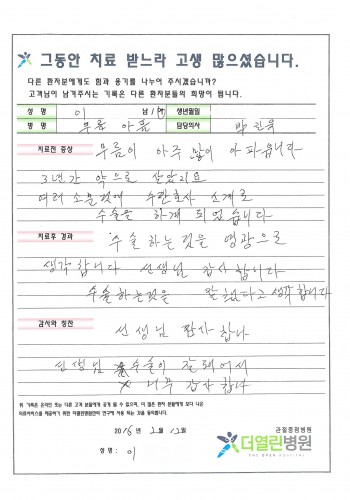 그동안 치료 받느라 고생 많으셨습니다.
다른 환자분에게도 힘과 용기를 나누어 주시겠습니까?
고객님이 남겨주시는 기록은 다른 환자분들의 희망이 됩니다.
성 명 이 남/여 생년월일
병 명 무릎 아픔 담당의사 박진욱
치료전 증상 무릎이 아주 많이 아파읍니다
3년간 약으로 살았지요
여러 소문 수간호사 소개로
수술을 하게 되었습니다
치료후 경과 수술하는것을 영광으로
생각합니다 선생님 감사 합니다
수술하는것을 잘했다고 생각합니다
감사와 칭찬 선생님 감사 합니다
선생님 수술이 잘되어서
너무 감사 합니다
위 기록은 온라인 또는 다른 고객 분들에게 공개 될 수 있으며, 더 많은 환자 분들에게 보다 나은
의료서비스를 제공하기 위한 더열린병원만의 연구에 사용 되는 것을 동의합니다.
2016년 2월 12일
성 명: 이
관절중점병원
더열린병원
THE OPEN HOSPITAL